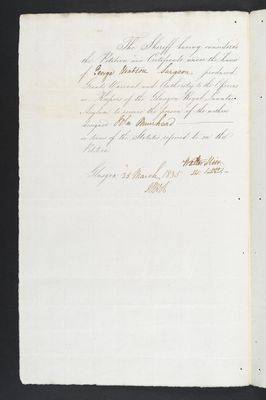 The Sheriff having considered
the Petition and Certificate under the hand
of George Watson Surgeon produced,
Grants Warrant and Authority to the Officers
or Keepers of the Glasgow Royal Lunatic
Asylum to receive the person of the within
designed John Muirhead
in terms of the Statutes referred to in the
Petition
Glasgow 25 March 1835